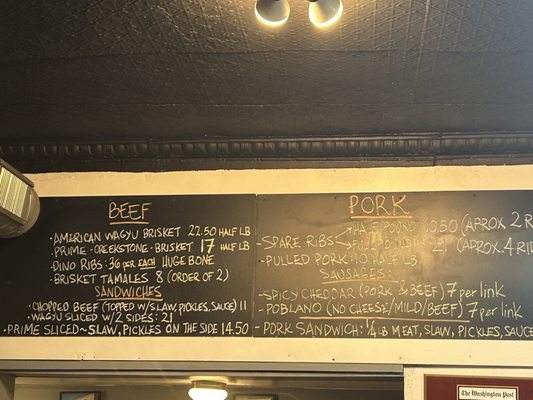 BEEF
·AMERICAN WAGYU BRISKET 22.50 HALF LB
·PRIME-CREEKSTONE-BRISKET 17 HALF LB
·DINO RIBS: 36 PER EACH HUGE BONE
·BRISKET TAMALES 8 (ORDER OF 2)
SANDWICHES
·CHOPPED BEEF (TOPPED W/SLAW, PICKLES, SAUCE) 11
·WAGYU SLICED W/2 SIDES: 21
·PRIME SLICED~SLAW, PICKLES ON THE SIDE 14.50
PORK
HALF POUND 10.50 (APROX 2 R
-SPARE RIBS
FULL POUND 21 (APROX. 4 RI
-PULLED PORK: 10 HALF LB
SAUSAGES:
-SPICY CHEDDAR (PORK & BEEF) 7 per link
-POBLANO (NO CHEESE/MILD/BEEF) 7 per link
-PORK SANDWICH: 1/4 LB MEAT, SLAW, PICKLES, SAUCE
The Washington Post